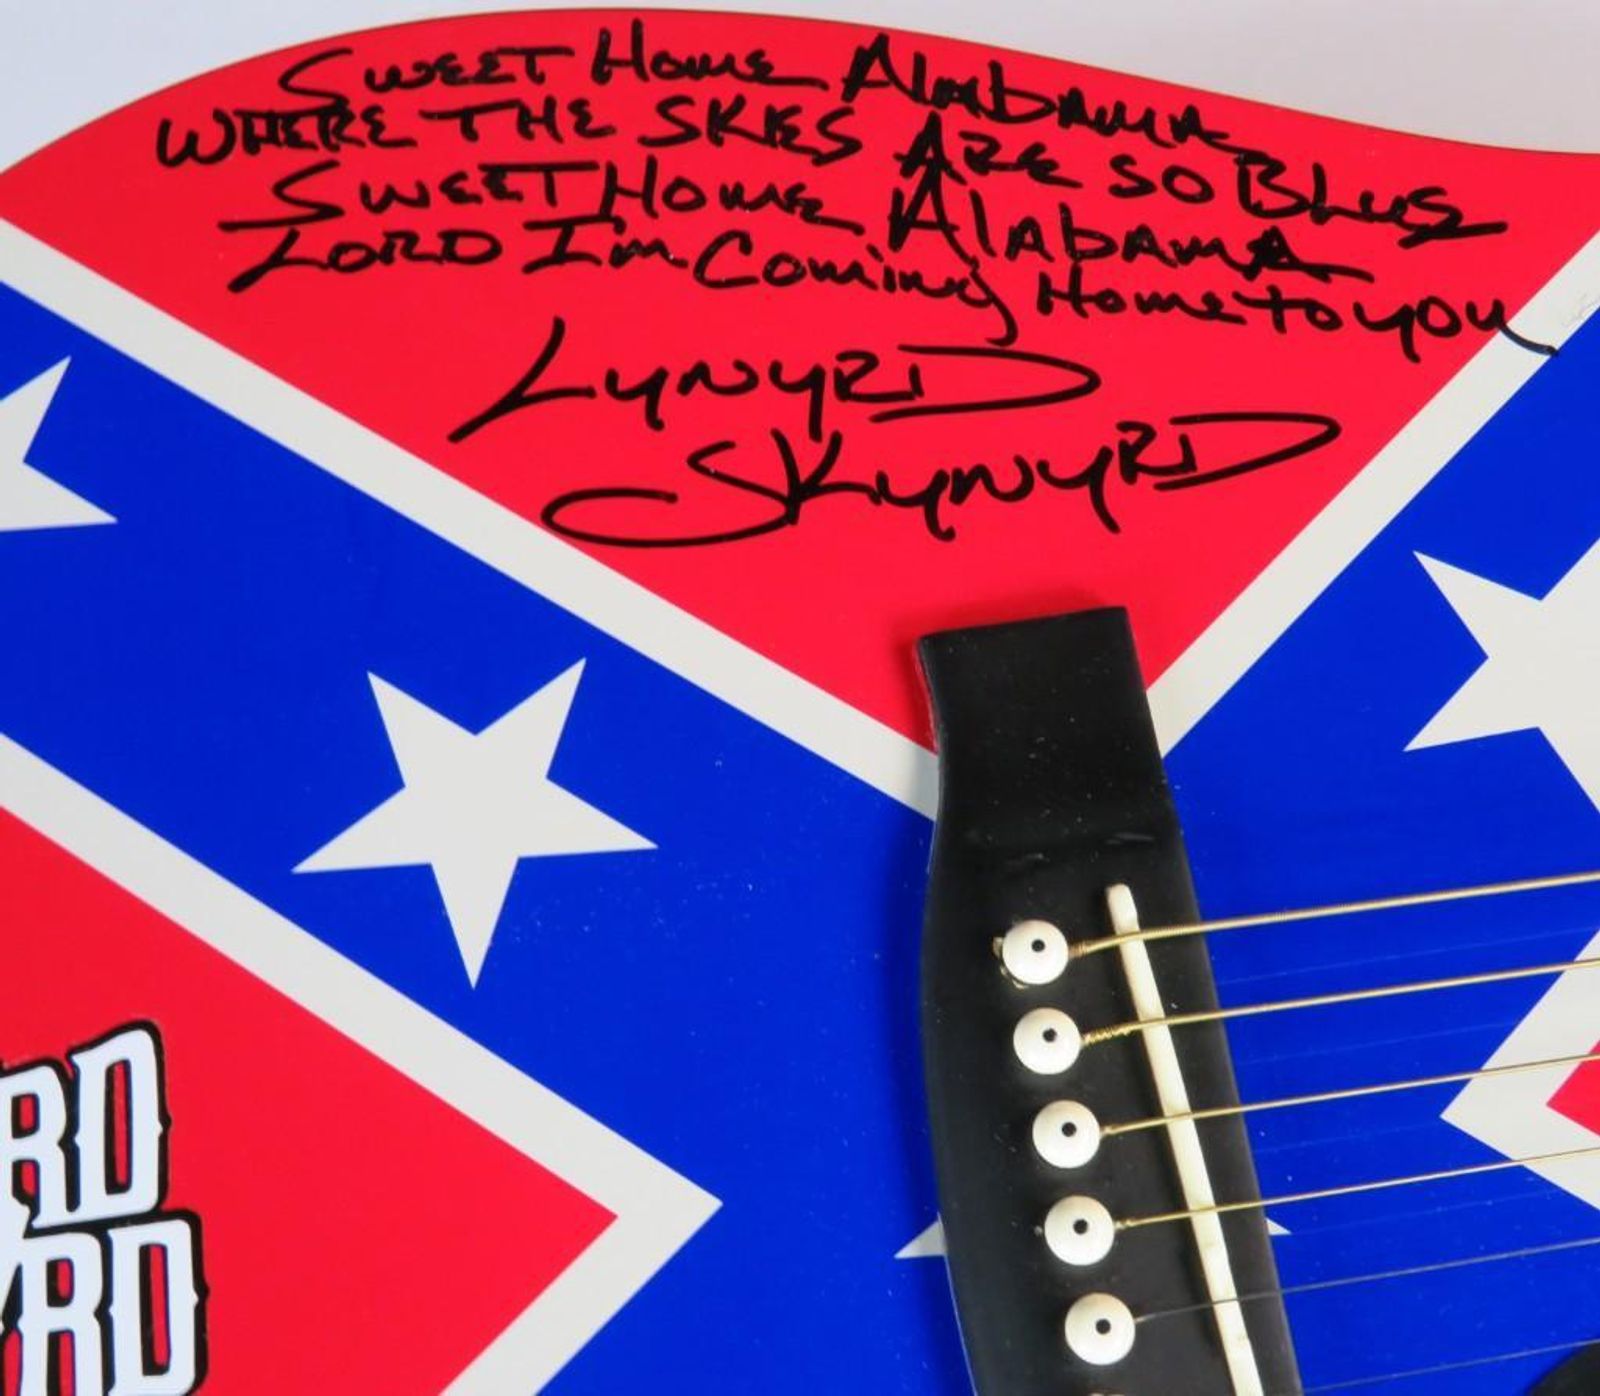 Sweet Home Alabama
Where the skies are so Blue
Sweet Home Alabama
Lord Im Coming Home to you
Lynyrd
Skynyrd
RD
YRD